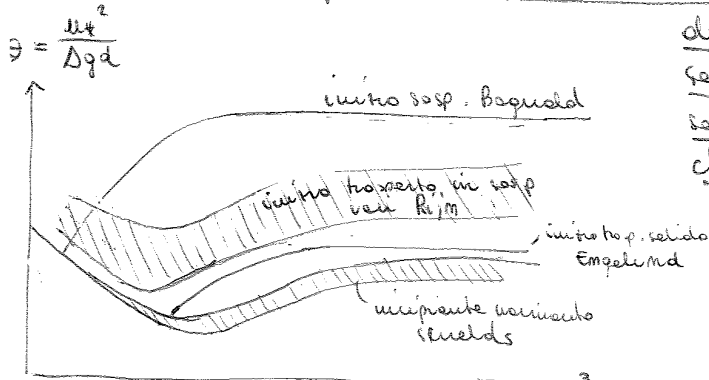 ϑ = u*²
Δgd
inizio sosp. Bagnold
inizio trasporto in sosp
van Rijn
inizio trasp. solido
Engelund
incipiente movimento
Shields